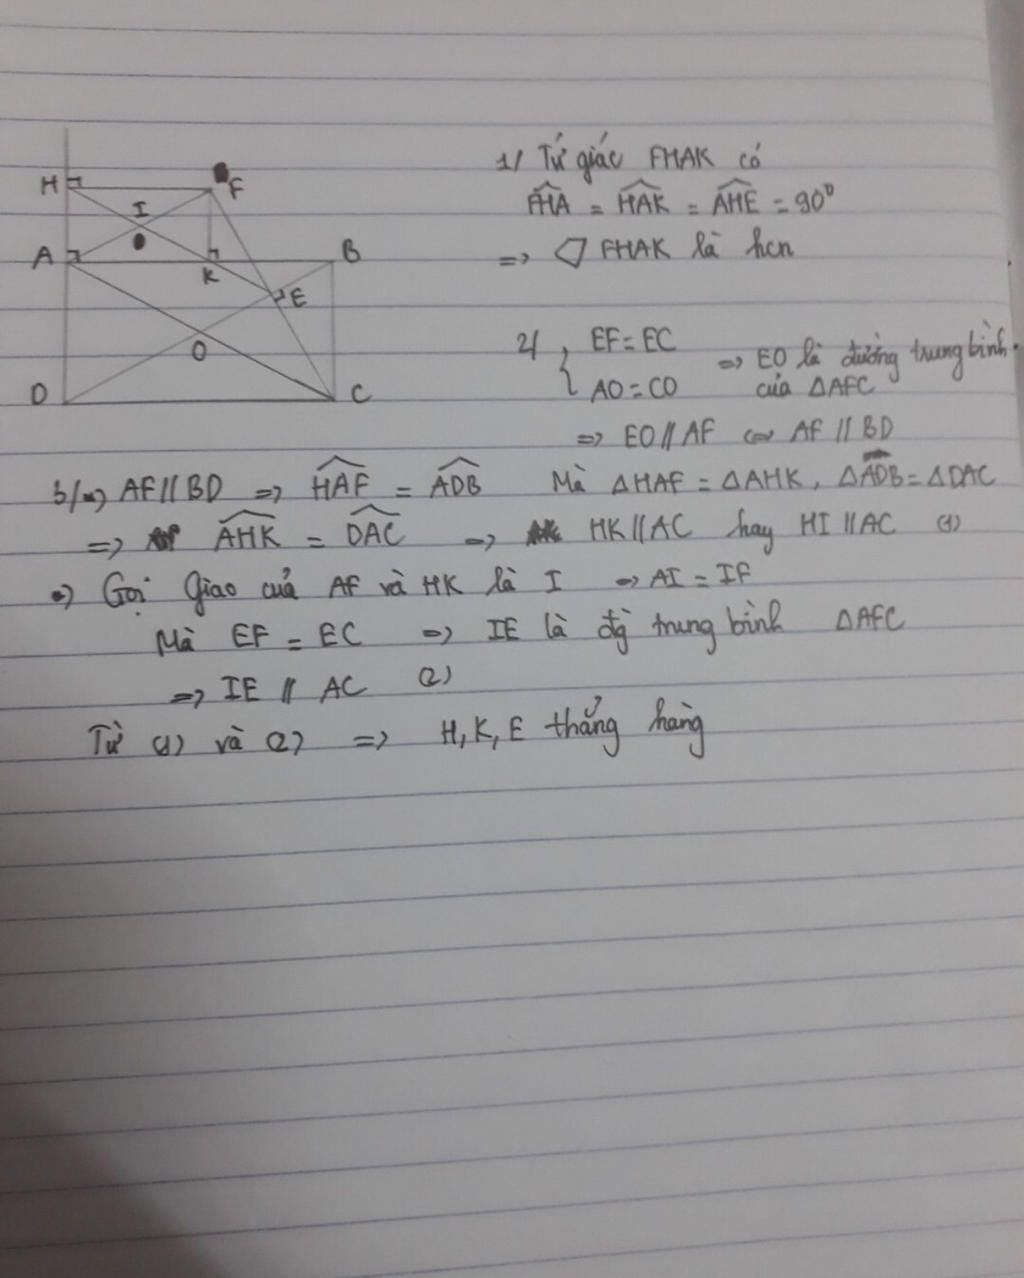 H
F
I
A
B
K
E
O
D
C
1/ Tứ giác FHAK có
FHA = HAK = AHE = 90°
=> FHAK là hcn
2/ { EF = EC
AO = CO
=> EO là đường trung bình
của ΔAFC
=> EO // AF <=> AF // BD
3/ *) AF // BD => HAF = ADB Mà ΔHAF = ΔAHK, ΔADB = ΔDAC
=> AHK = DAC => HK // AC hay HI // AC (1)
*) Gọi giao của AF và HK là I => AI = IF
Mà EF = EC => IE là đg trung bình ΔAFC
=> IE // AC (2)
Từ (1) và (2) => H, K, E thẳng hàng